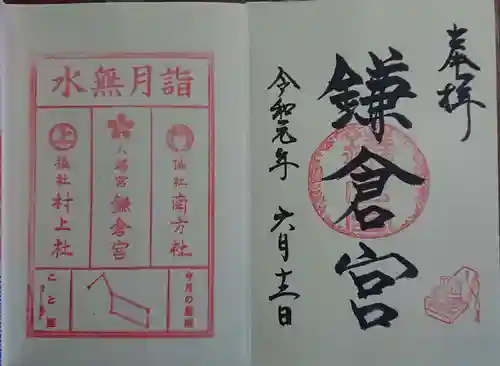 奉拝
鎌倉宮
令和元年 六月十二日
水無月詣
摂社 南方社
大塔宮 鎌倉宮
摂社 村上社
今月の星座
こと座